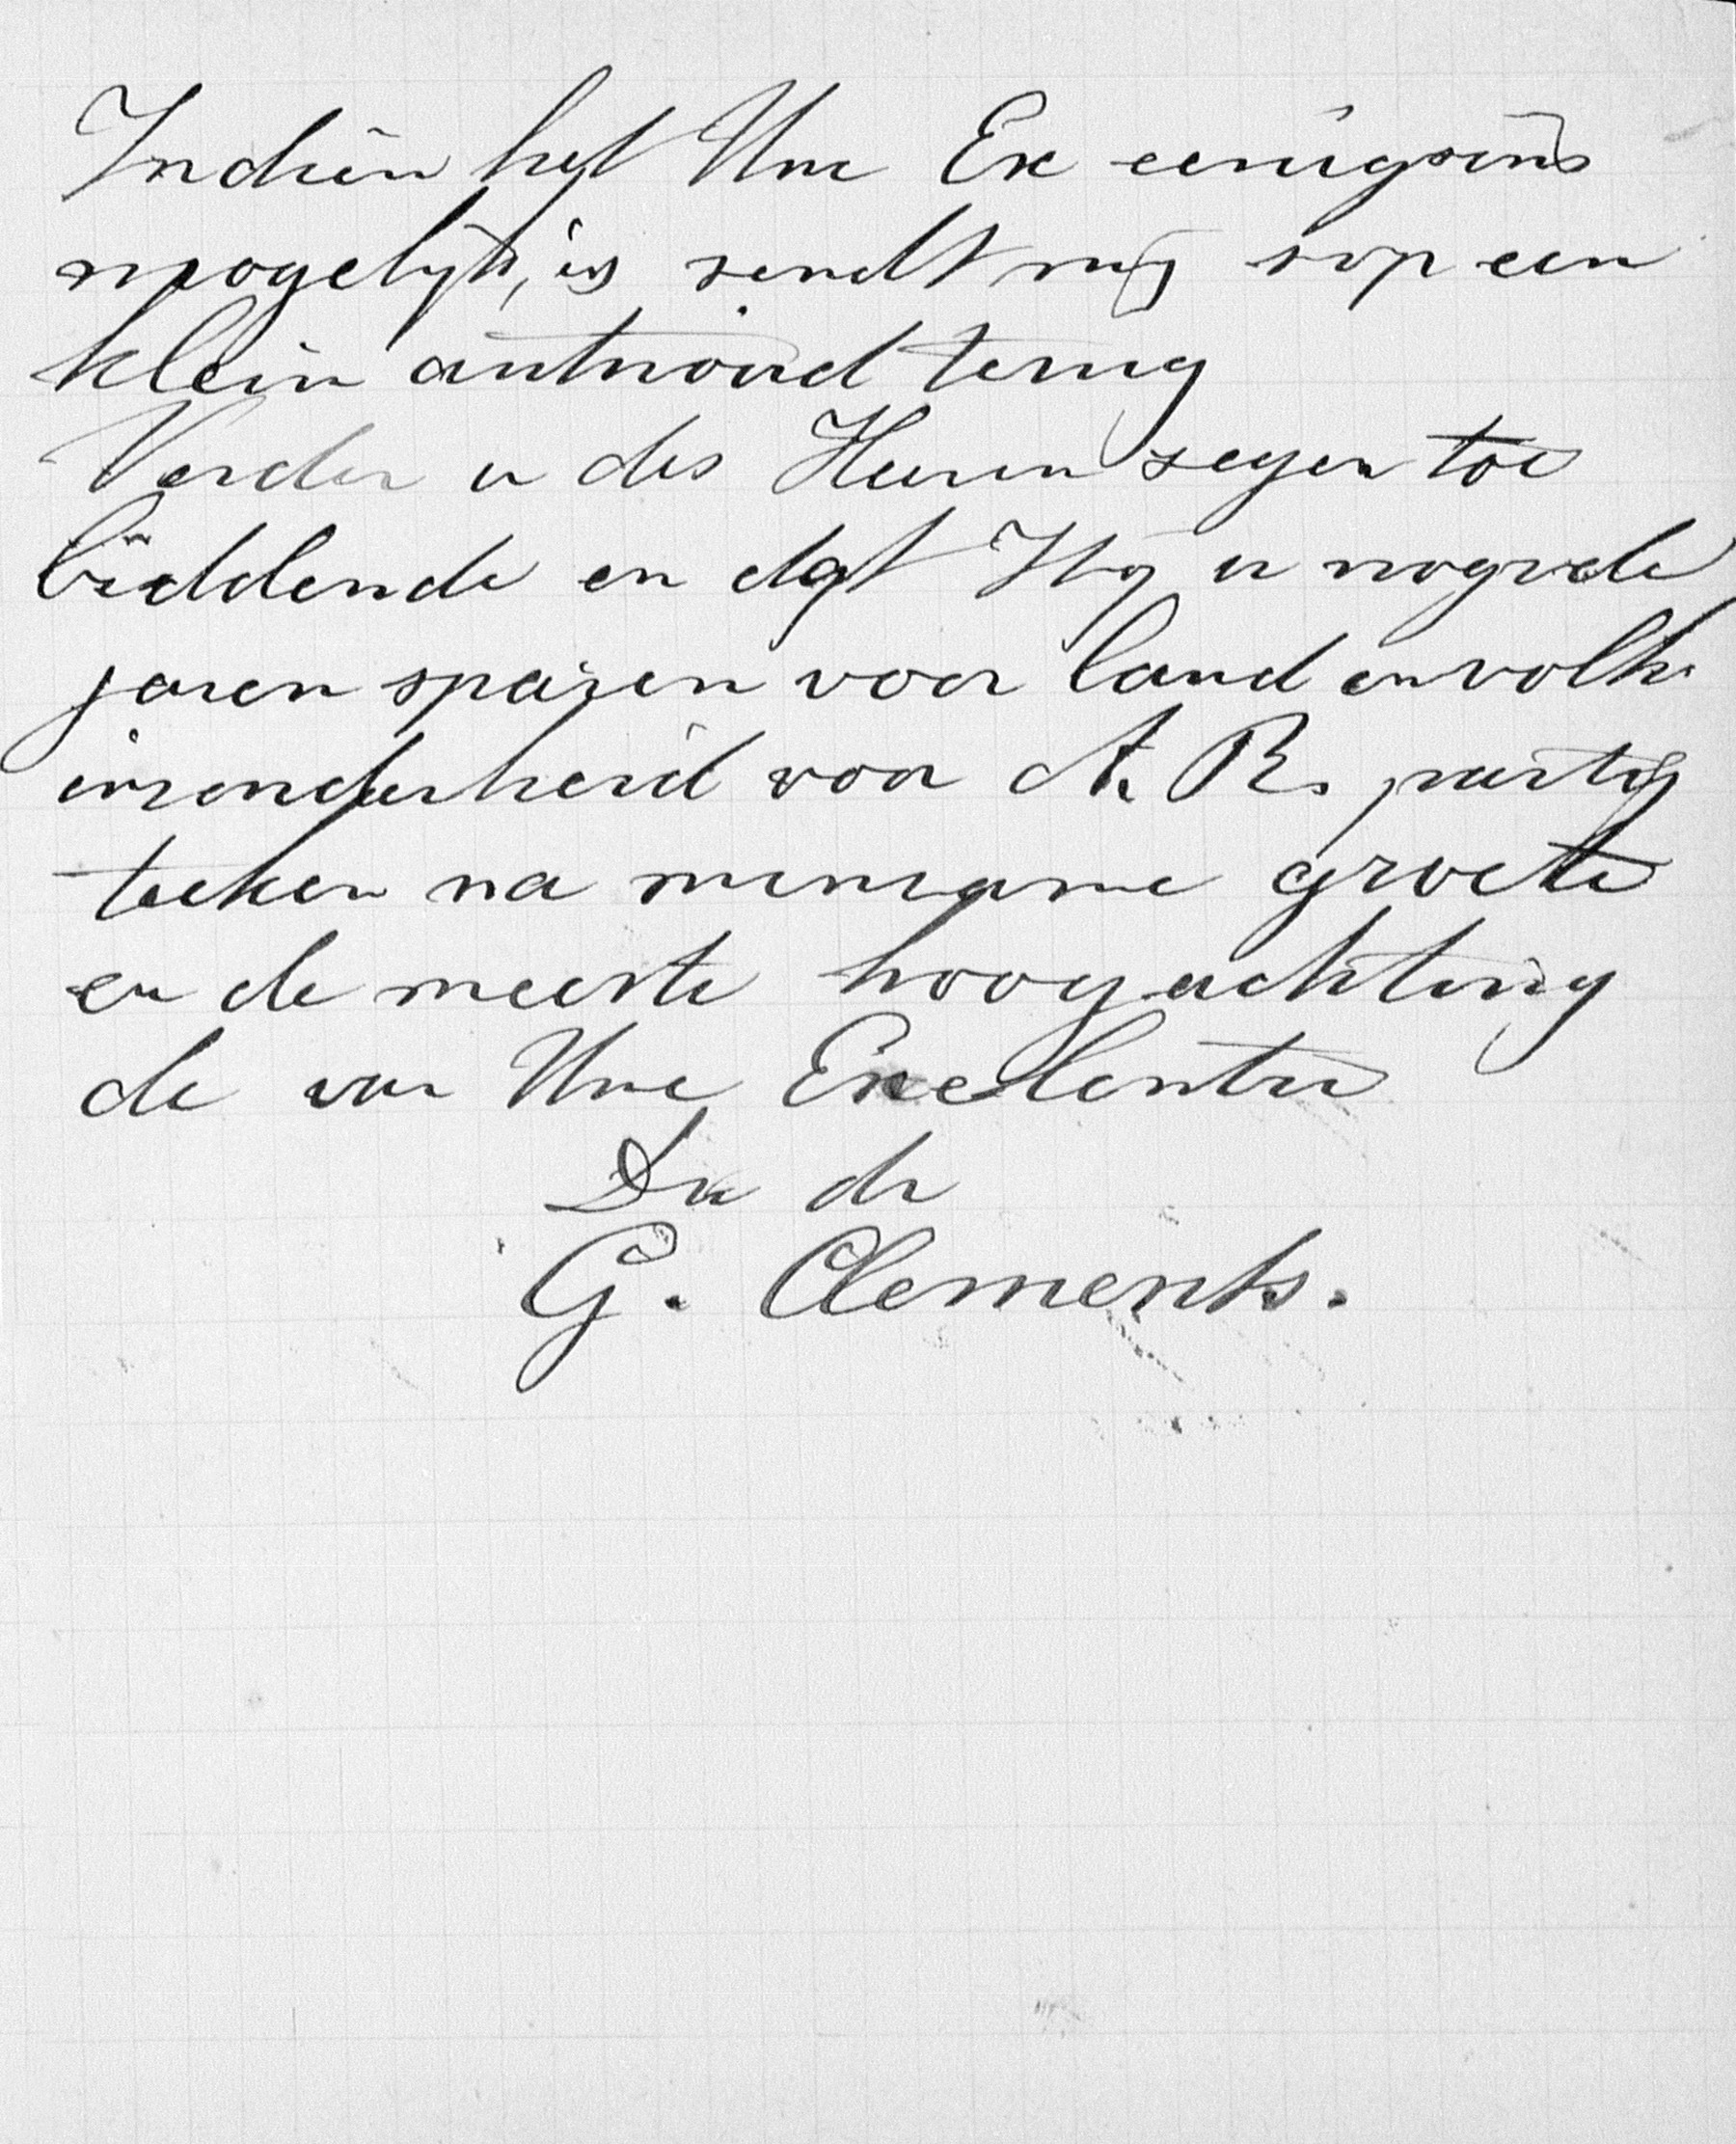 Indien het Uwe Ex eenigsins
mogelijk, is sendt mij sop een
klein antwoord terug
Verder u des Heeren segen toe
biddende en dat Hij u nog vele
jaren sparen voor land en volk
insonderheid voor A. R. partij
teeken na minsame groete
en de meeste hoogachting
de van Uwe Excelentie
Dw dr
G. Clements.